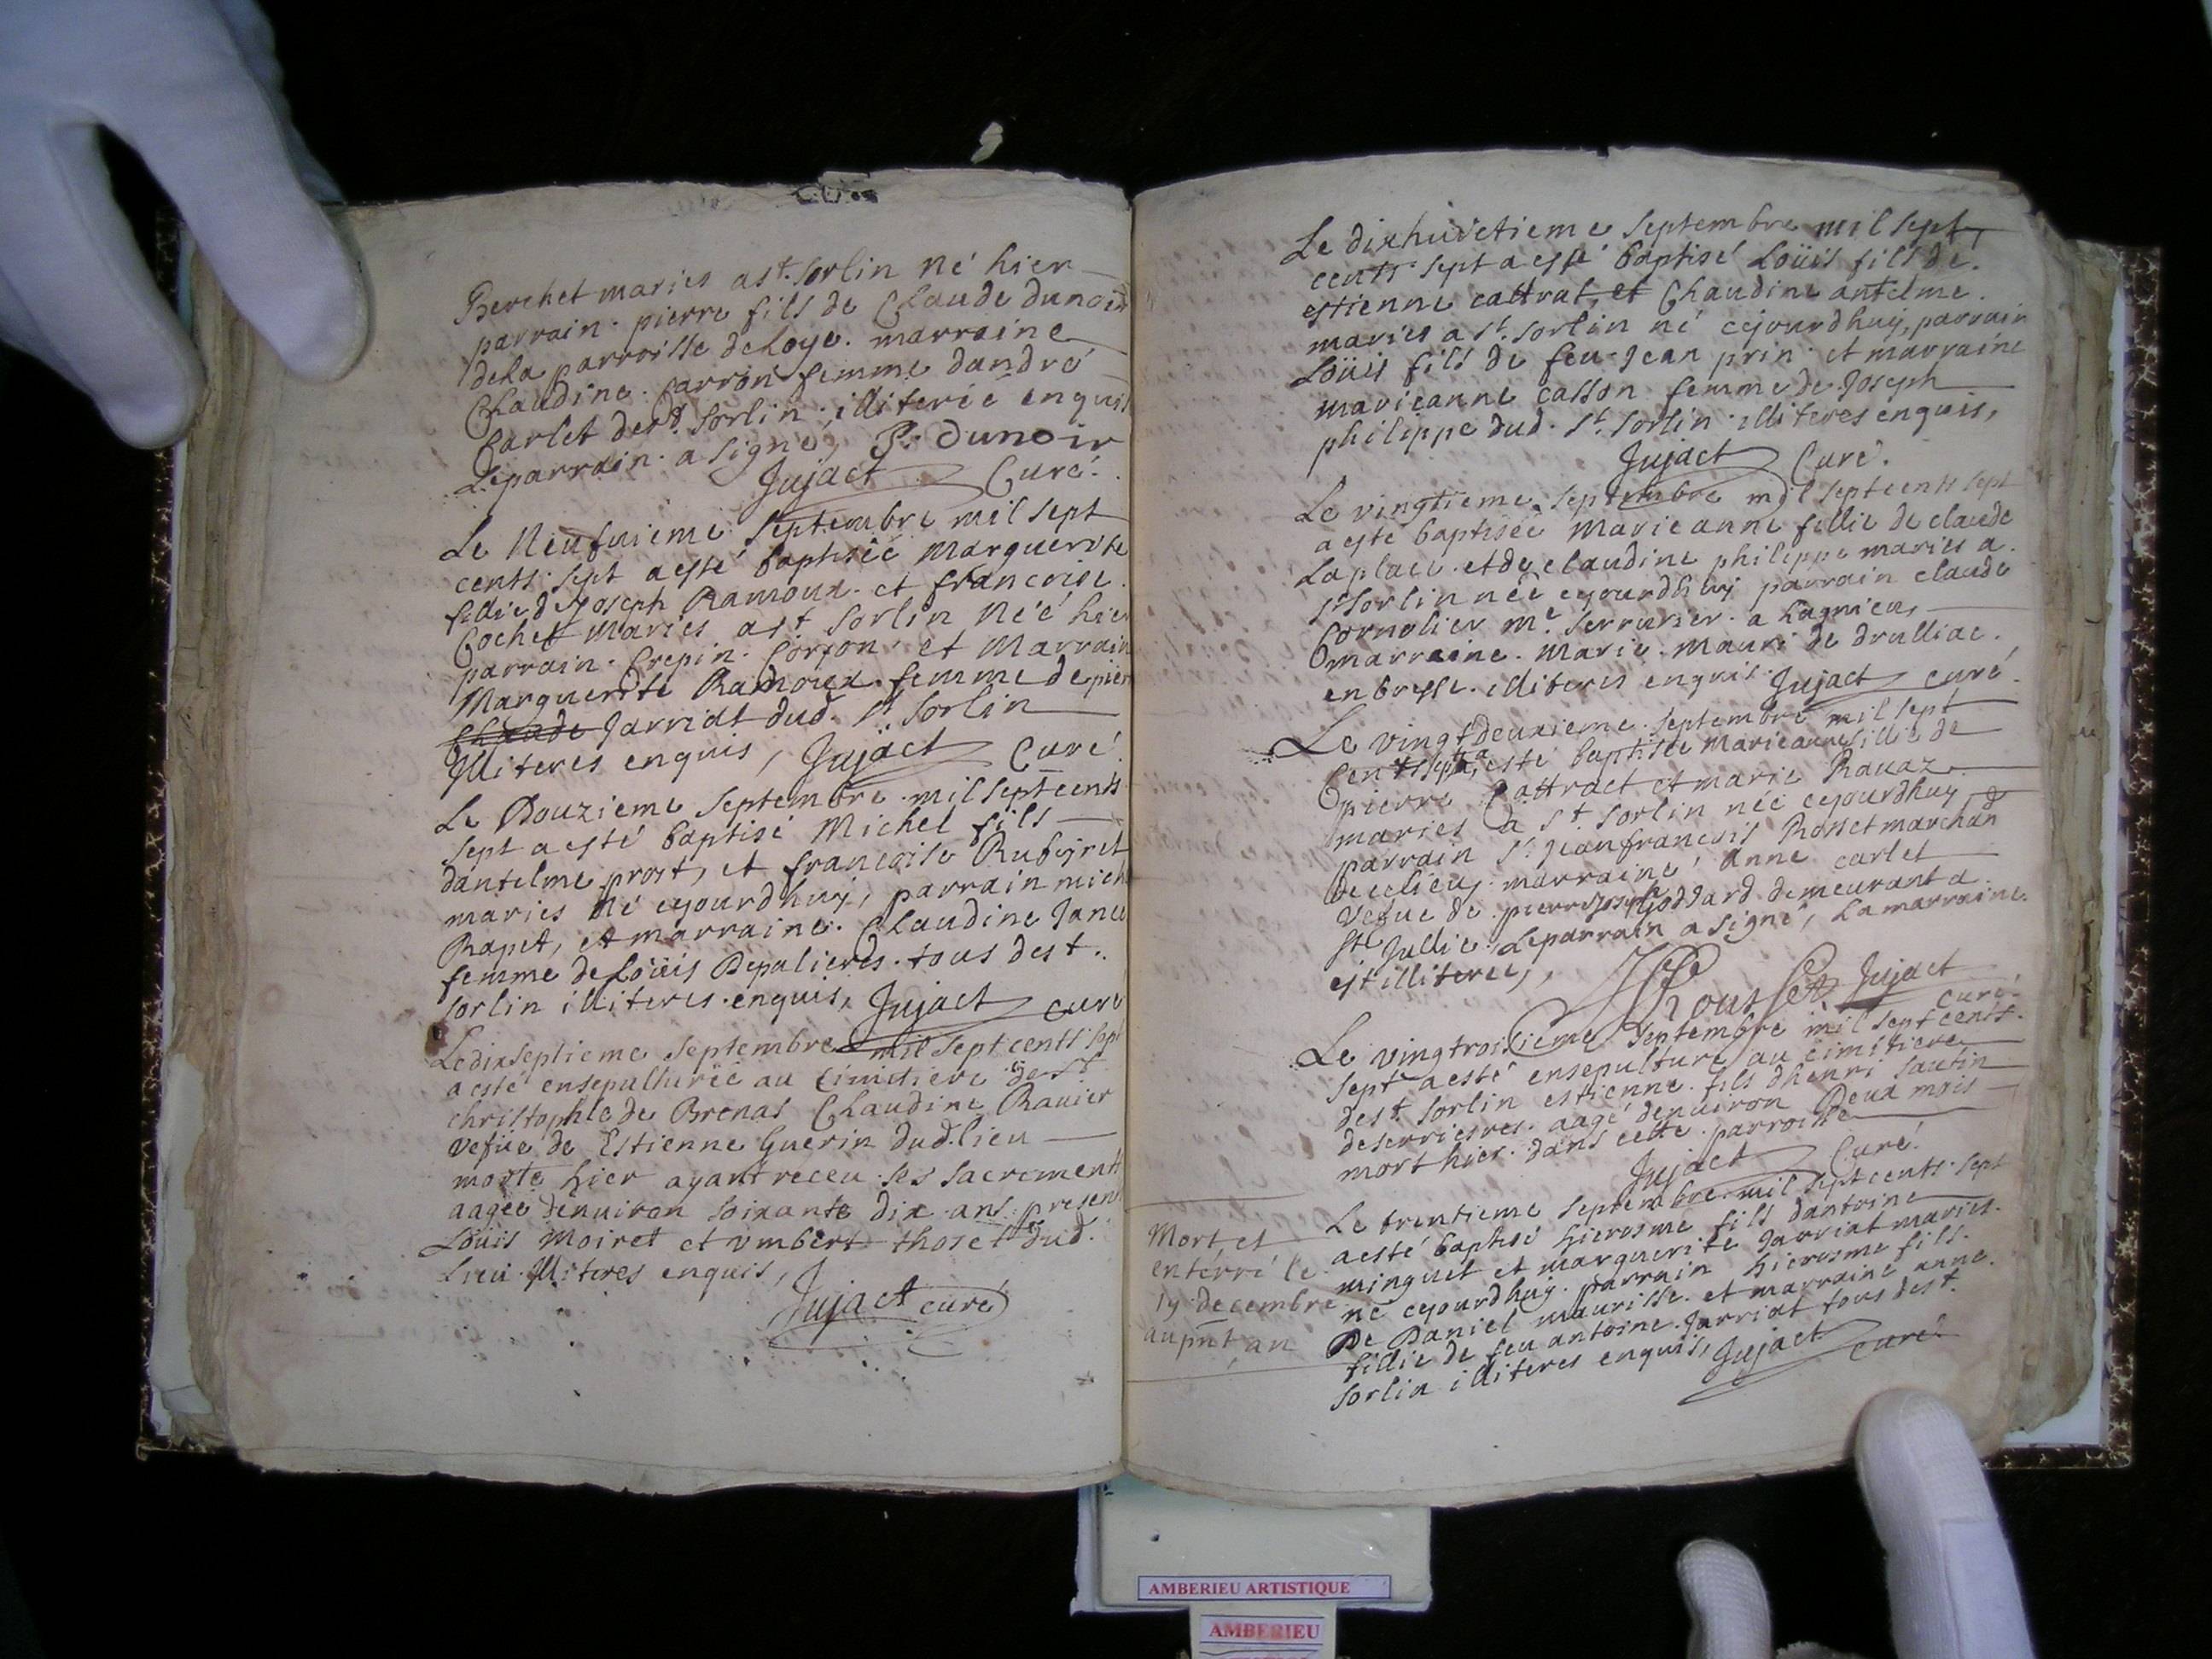 Berchet maries a st. sorlin né hier
parrain pierre fils de Claude dunoir
dela parroisse de Loye. marraine
Claudine Carron femme dandré
Carlet de st. sorlin illiterée enquis
Leparrain a signé, P. Dunoir
Jujact Curé.
Le Neufuieme Septembre mil sept
cents sept a esté baptiséé Marguerite
fillie de Joseph Ramoux et francoise
Cochet Maries a st sorlin Néé hier
parrain Crepin Corron et Marrain
Marguerite Ramoux femme de pier
Claude Jarriat dud. st. sorlin
Illiteres enquis, Jujact Curé
Le Douzieme Septembre mil sept cents
sept a esté baptisé Michel fils
dantelme prost, et francoise Rubeyret
maries Né cejourdhuy, parrain mich
Rapet, et marraine Claudine Jane
femme de Loüis Depalieres tous de st.
sorlin illiteres enquis, Jujact curé
Le dixseptieme Septembre mil sept cents sept
a esté ensepulturéé au Cimitiere de st
christophle de Brenas Claudine Rauier
vefue de Estienne Guerin dud. lieu
morte hier ayant receu ses sacrements
aagéé denuiron soixante dix ans presen
Loüis Moiret et vmbert thoset dud.
Lieu Illiteres enquis,
Jujact curé
Le dixhuictieme Septembre mil sept
cents sept a esté baptisé Loüis fils de
estienne cattrat, et Claudine antelme
maries a st. sorlin né cejourdhuy, parrain
Loüis fils de feu Jean prin et marraine
marieanne casson femme de Joseph
philippe dud. st. sorlin illiteres enquis,
Jujact Curé.
Le vingtieme Septembre mil sept cents sept
a esté baptiséé Marieanne fillie de claude
Laplace et de claudine philippe maries a
st sorlin néé cejourdhuy parrain claude
Cornolier me. serrurier a Lagnieu
marraine Marie Mauri de drulliae
en bresse illiteres enquis Jujact curé
Le vingtdeuxieme Septembre mil sept
Cents sept a esté baptiséé Marieanne fillie de
pierre Cattract et marie Rauaz
maries a st sorlin néé cejourdhuy
parrain sr. Jean francois Rosset marchan
de celieu marraine Anne carlet
vefue de pierre joseph Goddard demeurant a
ste Jullie, Leparrain a signé, La marraine
est illiterée, JF Rousset Jujact
curé
Le vingtroisieme Septembre mil sept cents
sept a esté ensepulturé au cimitiere
de st sorlin estienne fils dhenri sautin
deserrieres aagé denuiron Deux mois
mort hier dans cette parroisse
Jujact Curé
Mort et
enterré le
19 decembre
au pnt an
Le trentieme Septembre mil sept cents sept
a esté baptisé hierosme fils dantoine
minguet et marguerite Jarriat maries
né cejourdhuy parrain hierosme fils
De Daniel maurisse et marraine anne
fillie de feu antoine Jarriat tous de st.
sorlin illiteres enquis, Jujact curé
AMBERIEU ARTISTIQUE
AMBERIEU